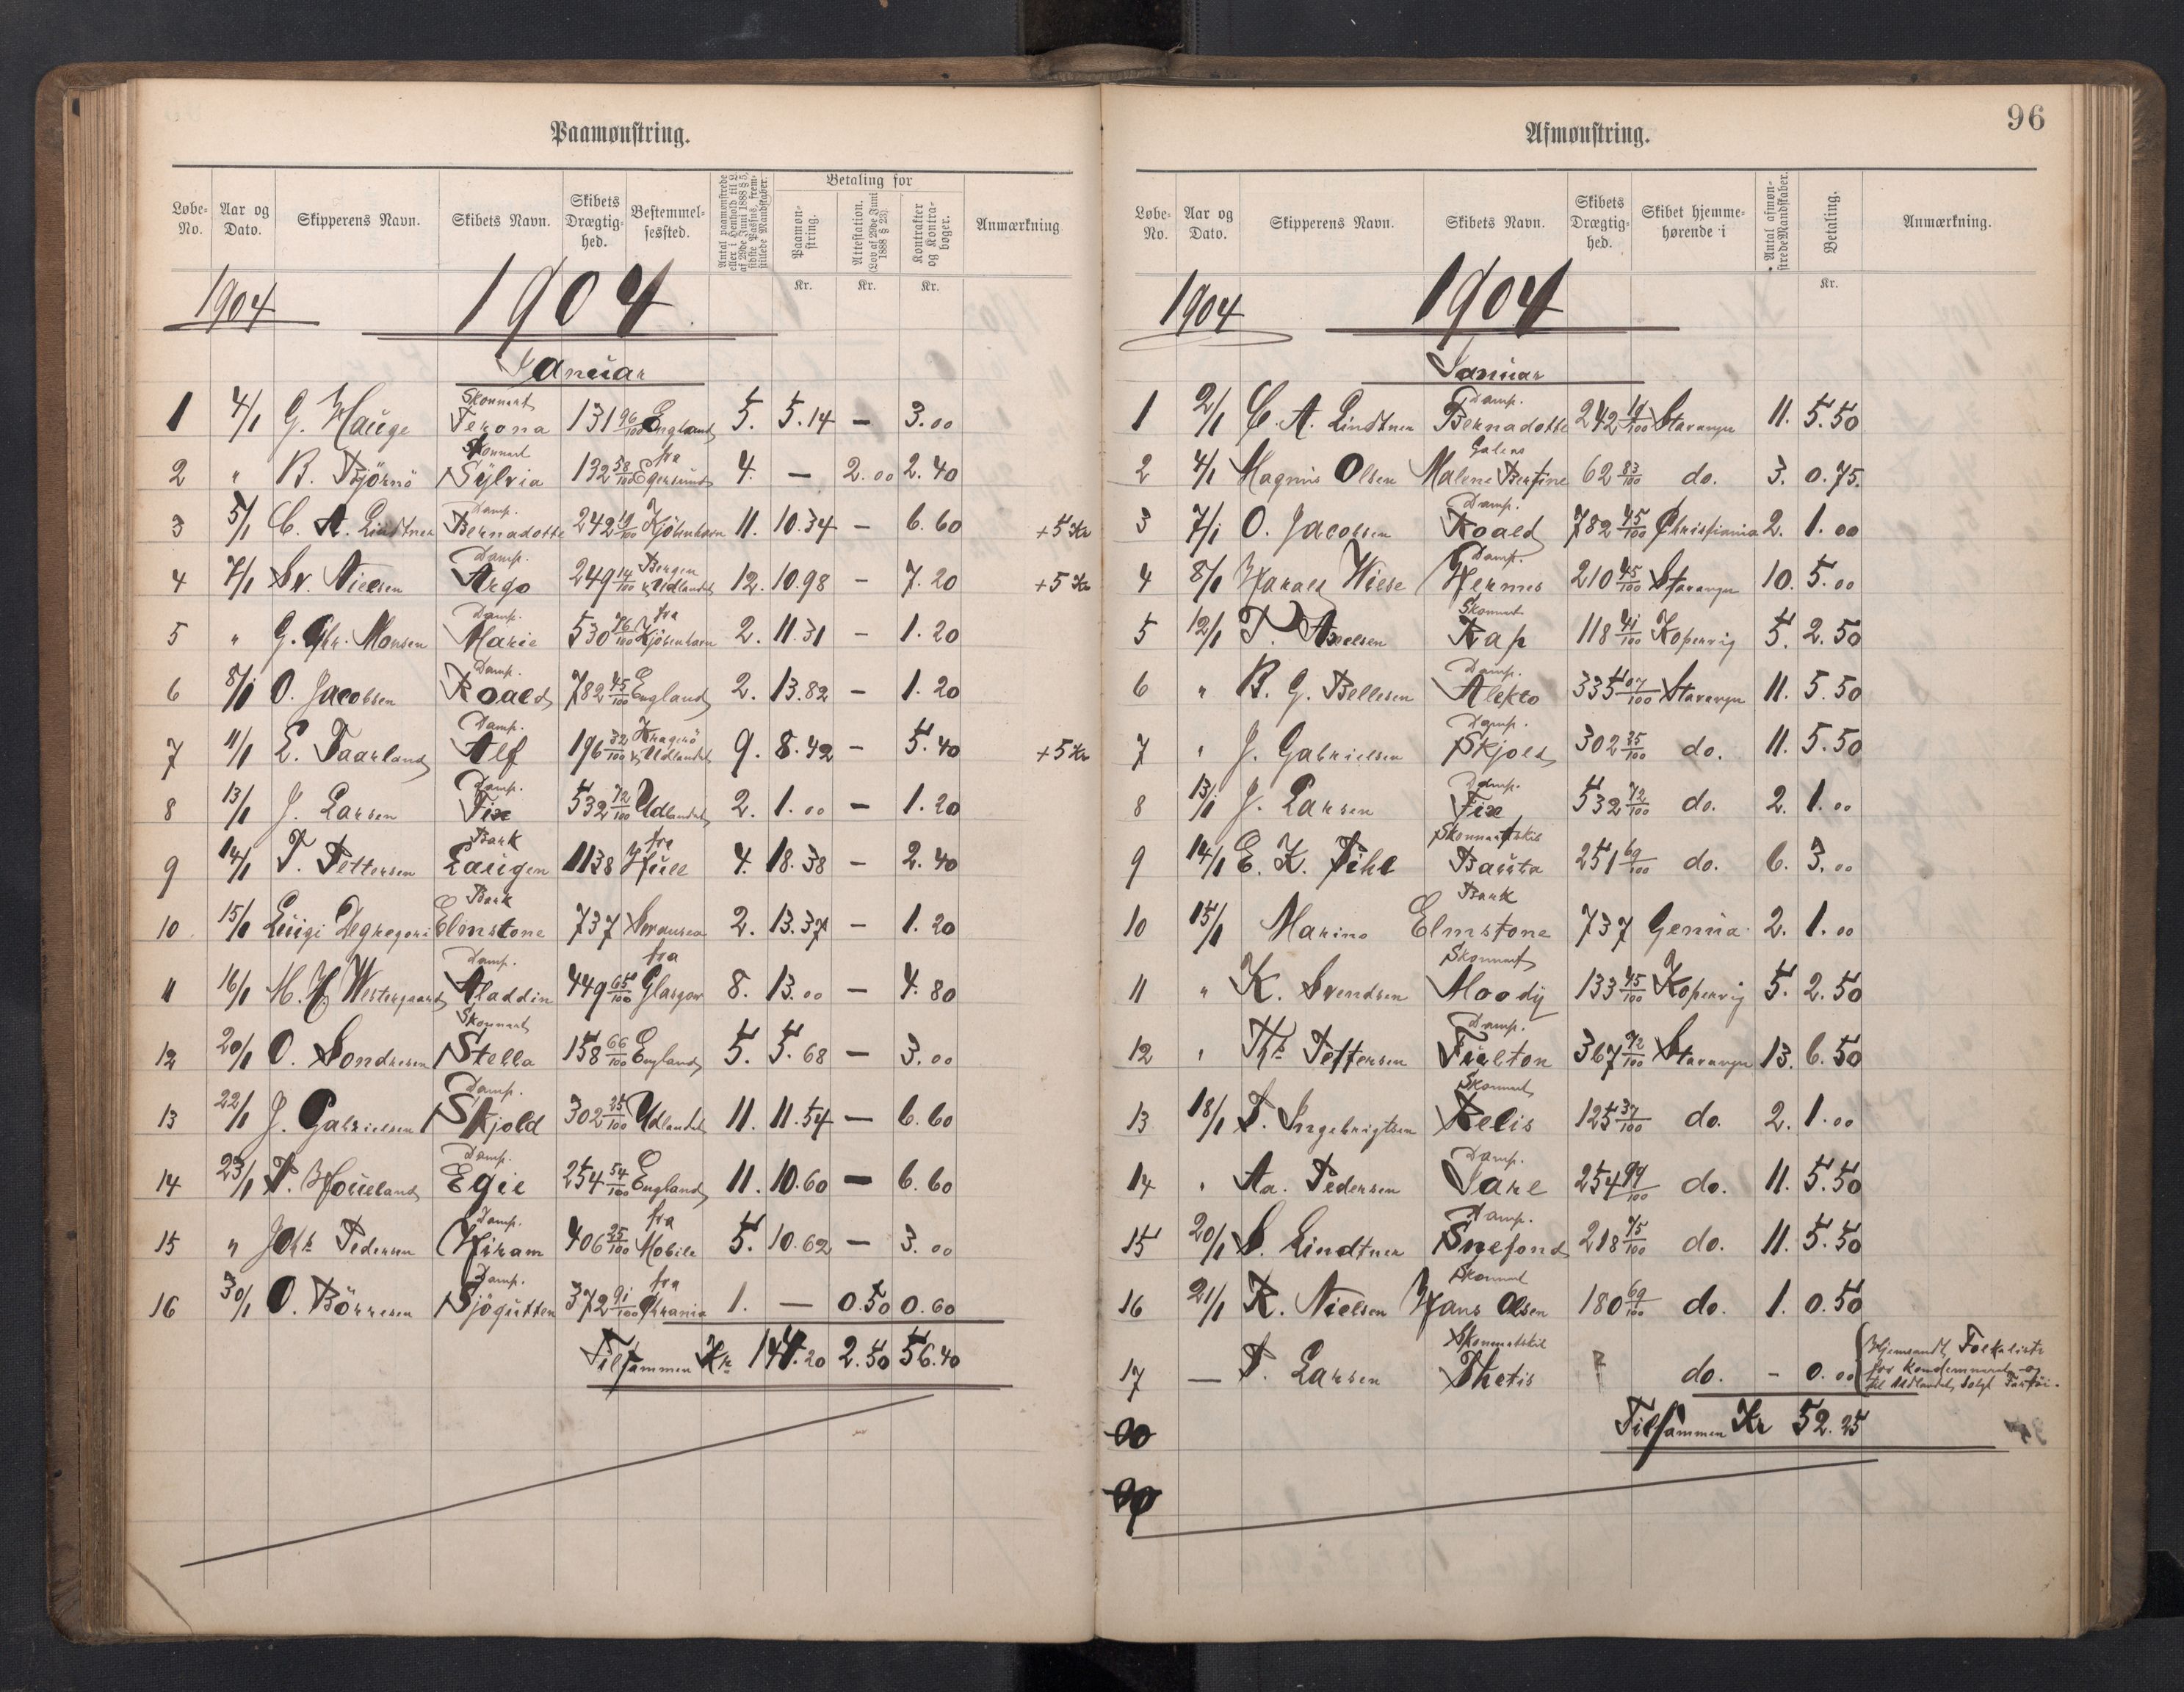 Paamønstring.
Løbe-No. Aar og Dato. Skipperens Navn. Skibets Navn. Skibets Drægtighed. Bestemmelsessted. Antal paamønstrede eller i Henhold til L. af 29de Juni 1888 § 5, sidste Passus, fremstillede Mandskaber. Betaling for Paamønstring. Attestation. (Lov af 29de Juni 1888 § 23). Kontrakter og Kontrabøger. Anmærkning
Kr. Kr. Kr.
1904 1904
Januar
1 4/1 G. Hauge Skonnert Verona 131 96/100 England 5. 5.14 — 3.00
2 " B. Björnö Skonnert Sylvia 132 58/100 fra Egersund 4. — 2.00 2.40
3 5/1 C. A. Lindtner Damp. Bernadotte 242 19/100 Kjöbenhavn 11. 10.34 — 6.60 +5 Kr
4 7/1 Sv. Nielsen Damp. Argo 249 14/100 Bergen & Udlandet 12. 10.98 — 7.20 +5 Kr
5 " G. Chr. Monsen Damp. Marie 530 76/100 fra Kjöbenhavn 2. 11.31 — 1.20
6 8/1 O. Jacobsen Damp. Roald 782 45/100 England 2. 13.82 — 1.20
7 11/1 E. Taarland Damp. Alf 196 32/100 Kragerö & Udlandet 9. 8.42 — 5.40 +5 Kr
8 13/1 J. Larsen Damp. Fix 532 72/100 Udlandet 2. 1.00 — 1.20
9 14/1 T. Pettersen Bark Laurgen 1138 fra Hull 4. 18.38 — 2.40
10 15/1 Luigi Degregori Bark Elmstone 737 Swansea 2. 13.37 — 1.20
11 16/1 M. H. Westergaard Damp. Aladdin 449 65/100 fra Glasgow 8. 13.00 — 4.80
12 20/1 O. Sondresen Skonnert Stella 158 66/100 England 5. 5.68 — 3.00
13 22/1 J. Gabrielsen Damp. Skjold 302 25/100 Udlandet 11. 11.54 — 6.60
14 23/1 T. Houeland Damp. Egil 254 54/100 England 11. 10.60 — 6.60
15 " Johs Pedersen Damp. Hiram 406 25/100 fra Mobile 5. 10.62 — 3.00
16 30/1 O. Börresen Damp. Sjögutten 372 91/100 fra Chrania 1. — 0.50 0.60
Tilsammen Kr 147.20 2.50 56.40
96
Afmønstring.
Løbe-No. Aar og Dato. Skipperens Navn. Skibets Navn. Skibets Drægtighed. Skibet hjemmehørende i Antal afmønstrede Mandskaber. Betaling. Anmærkning.
Kr.
1904 1904
Januar
1 2/1 C. A. Lindtner Damp. Bernadotte 242 19/100 Stavanger 11. 5.50
2 4/1 Magnus Olsen Galeas Malene Bertine 62 83/100 do. 3. 0.75.
3 7/1 O. Jacobsen Damp. Roald 782 45/100 Christiania 2. 1.00
4 8/1 Harald Wiese Damp. Hermes 210 45/100 Stavanger 10. 5.00
5 12/1 T. Axelsen Skonnert Rap 118 41/100 Kopervig 5. 2.50
6 " B. G. Bellesen Damp. Alekto 335 07/100 Stavanger 11. 5.50
7 " J. Gabrielsen Damp. Skjold 302 25/100 do. 11. 5.50
8 13/1 J. Larsen Damp. Fix 532 72/100 do. 2. 1.00
9 14/1 E. K. Pihl Skonnertskib Bauta 251 69/100 do. 6. 3.00
10 15/1 Marino Bark Elmstone 737 Genua 2. 1.00
11 " K. Svendsen Skonnert Moody 133 45/100 Kopervig 5. 2.50
12 " Ths Pettersen Damp. Fulton 367 92/100 Stavanger 13. 6.50
13 18/1 T. Ingebrigtsen Skonnert Relis 125 37/100 do. 2. 1.00
14 " Aa. Pedersen Damp. Jarl 254 99/100 do. 11. 5.50
15 20/1 S. Lindtner Damp. Snefond 218 75/100 do. 11. 5.50
16 21/1 R. Nielsen Skonnert Hans Olsen 180 69/100 do. 1. 0.50
17 — T. Larsen Skonnertskib Thetis do. - 0.00 Hjemsendt Folkeliste for kondemneret og til Udlandet solgt
Tilsammen Kr 52.25